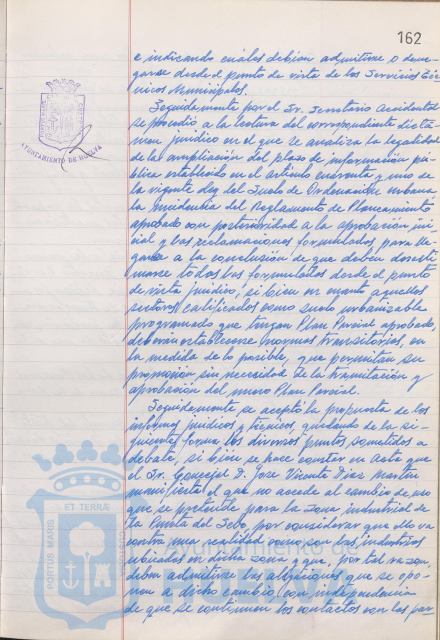 162
e indicando cuáles debían admitirse o dene-
garse desde el punto de vista de los Servicios Téc-
nicos Municipales.
Seguidamente por el Sr. Secretario Accidental
se procedió a la lectura del correspondiente dictá-
men jurídico en el que se analiza la legalidad
de la ampliación del plazo de información pú-
blica establecido en el artículo cuarenta y uno de
la vigente Ley del Suelo de Ordenación urbana
la incidencia del Reglamento de Planeamiento
aprobado con posterioridad a la aprobación ini-
cial y las reclamaciones formuladas, para lle-
garse a la conclusión de que deben desesti-
marse todas las formuladas desde el punto
de vista jurídico, si bien en cuanto a aquellos
sectores calificados como suelo urbanizable
programado que tengan Plan Parcial aprobado,
deberán establecerse normas transitorias, en
la medida de lo posible, que permitan su
promoción sin necesidad de la tramitación y
aprobación del nuevo Plan Parcial.
Seguidamente se aceptó la propuesta de los
informes jurídicos y técnicos, quedando de la si-
guiente forma los diversos puntos sometidos a
debate, si bien se hace constar en acta que
el Sr. Concejal D. José Vicente Díaz Martín
manifiesta el que no accede al cambio de uso
que se pretende para la zona industrial de
la Punta del Sebo, por considerar que ello va
contra una realidad como son las industrias
ubicadas en dicha zona y que, por tal razón,
deben admitirse las alegaciones que se opo-
nen a dicho cambio, con independencia
de que se continuen los contactos con las par-
AYUNTAMIENTO DE HUELVA
PORTUS MARIS
ET TERRÆ
CUSTODIA
Ayuntamiento de